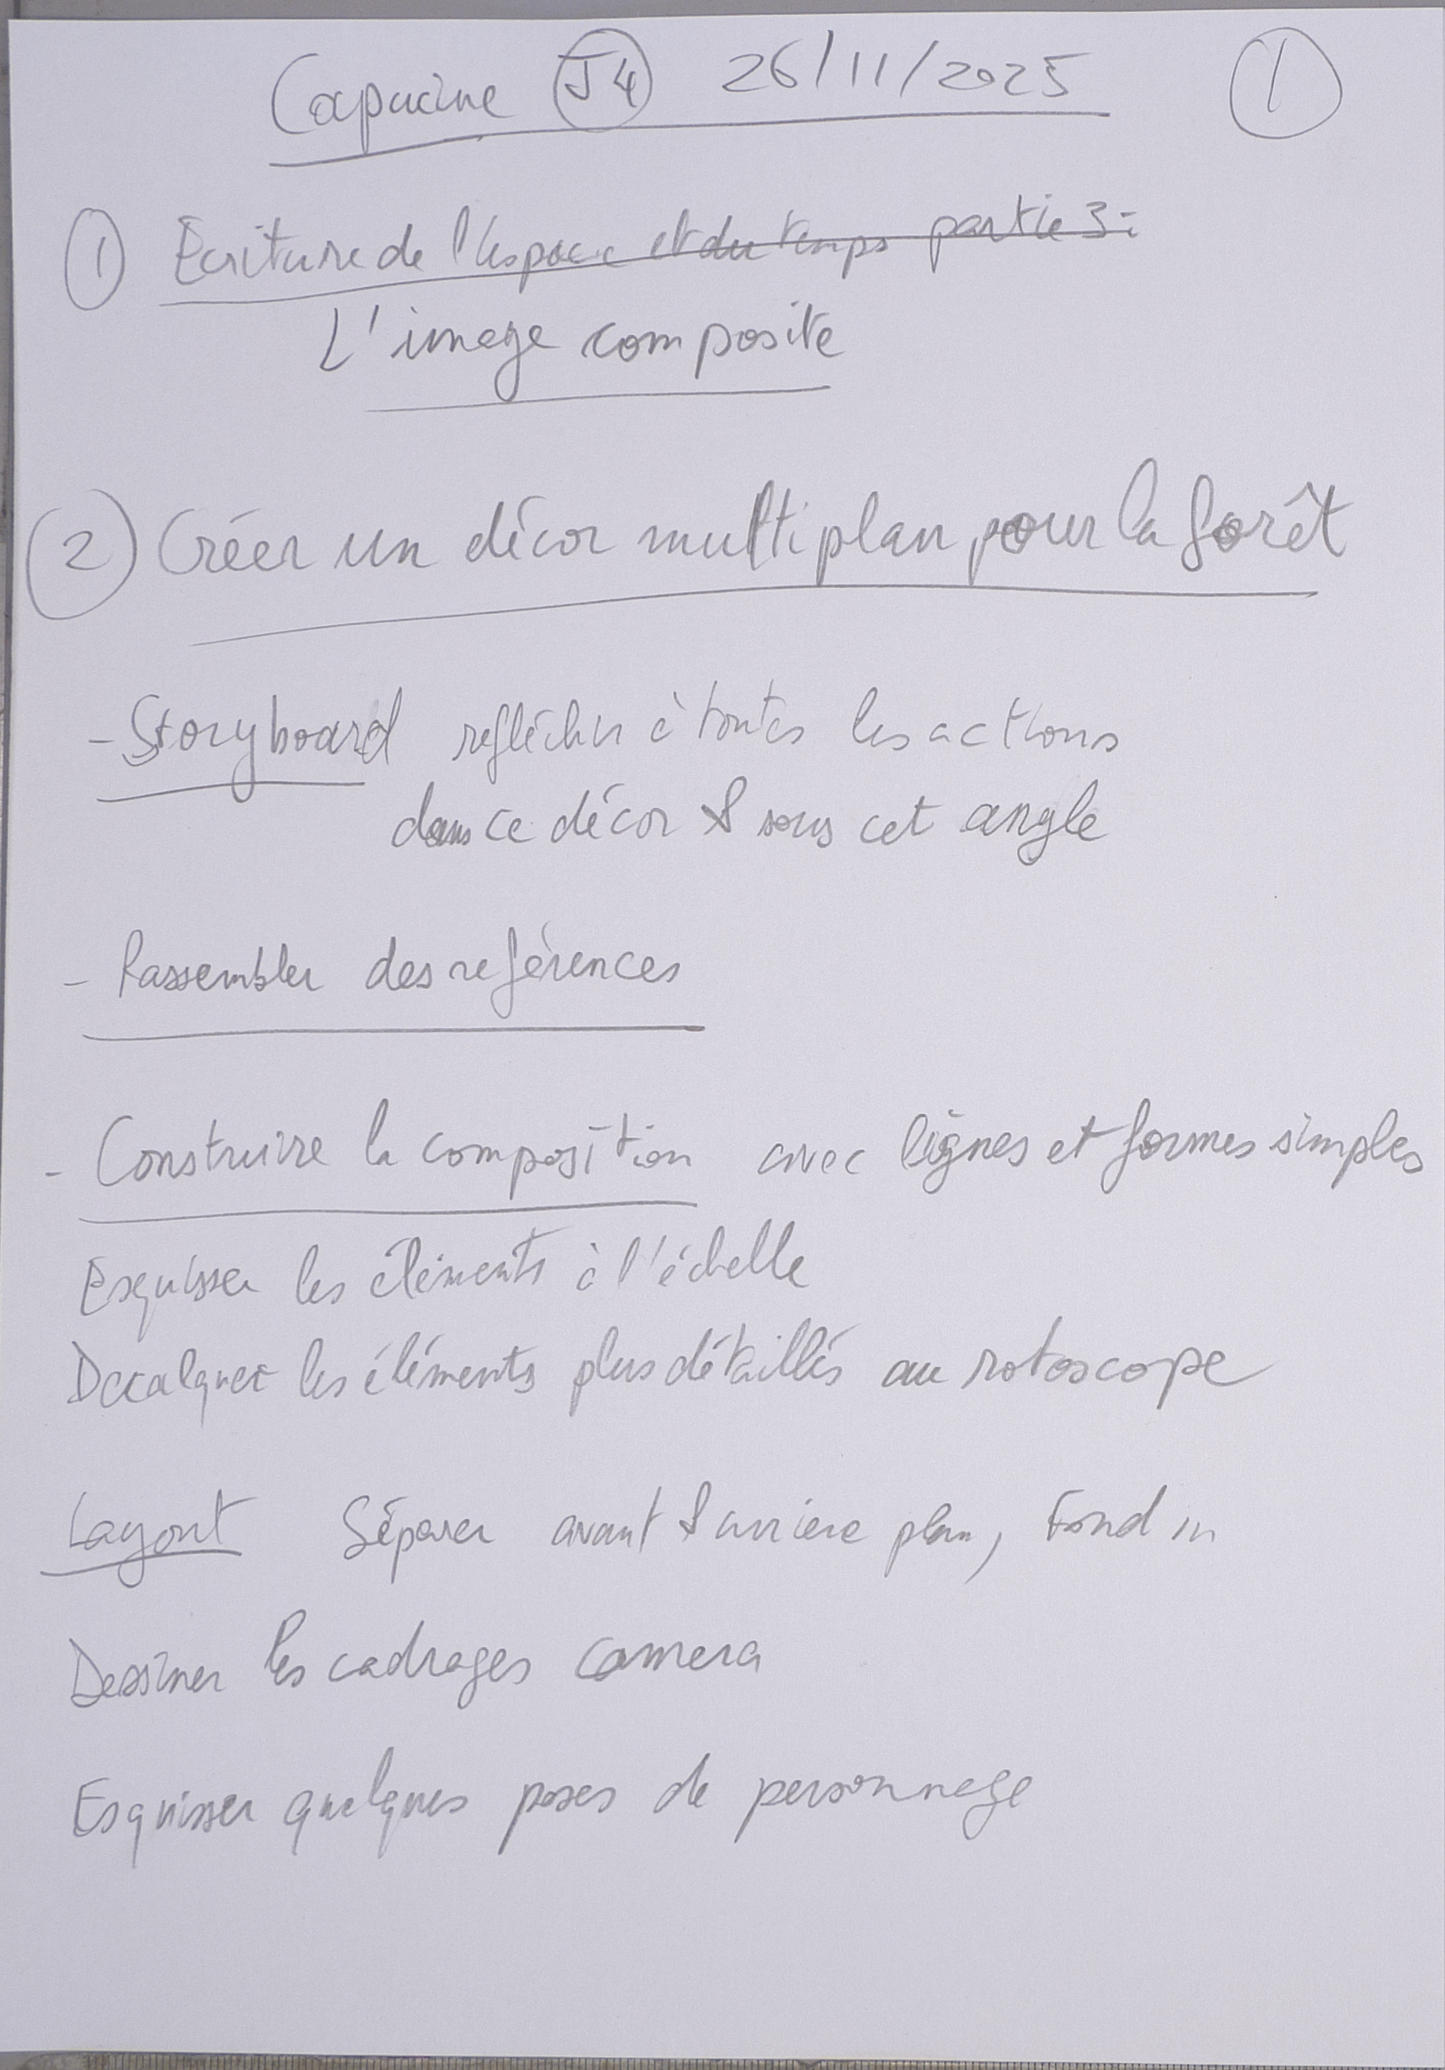 Capucine J4 26/11/2025 1
1 Ecriture de l'espace et du temps partie 3:
L'image composite
2 Créer un décor multiplan pour la forêt
- Storyboard réfléchir à toutes les actions
dans ce décor & sous cet angle
- Rassembler des références
- Construire la composition avec lignes et formes simples
Esquisser les éléments à l'échelle
Decalquer les éléments plus détaillés au rotoscope
Layout Séparer avant & arrière plan, Fond
Dessiner les cadrages camera
Esquisser quelques poses de personnage